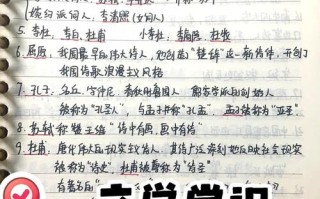 (婉约派词人：李清照(女词人)
5. 李杜：李白、杜甫　小李杜：李商隐、杜牧
6. 屈原：我国最早的伟大诗人，他创造了“楚辞”这一新诗体，开创了
我国诗歌浪漫主义风格
7. 孔子：名丘，字仲尼，春秋时鲁国人，儒家学派的创始人
被称为“孔圣人”，与孟子并称“孔孟”，孟子被称为“亚圣”
8. 苏轼称赞王维“诗中有画，画中有诗”
9. 杜甫：唐代伟大的现实主义诗人，其诗广泛深刻地反映社会现实
被称为“诗史”，杜甫被尊称为“诗圣”
文学常识